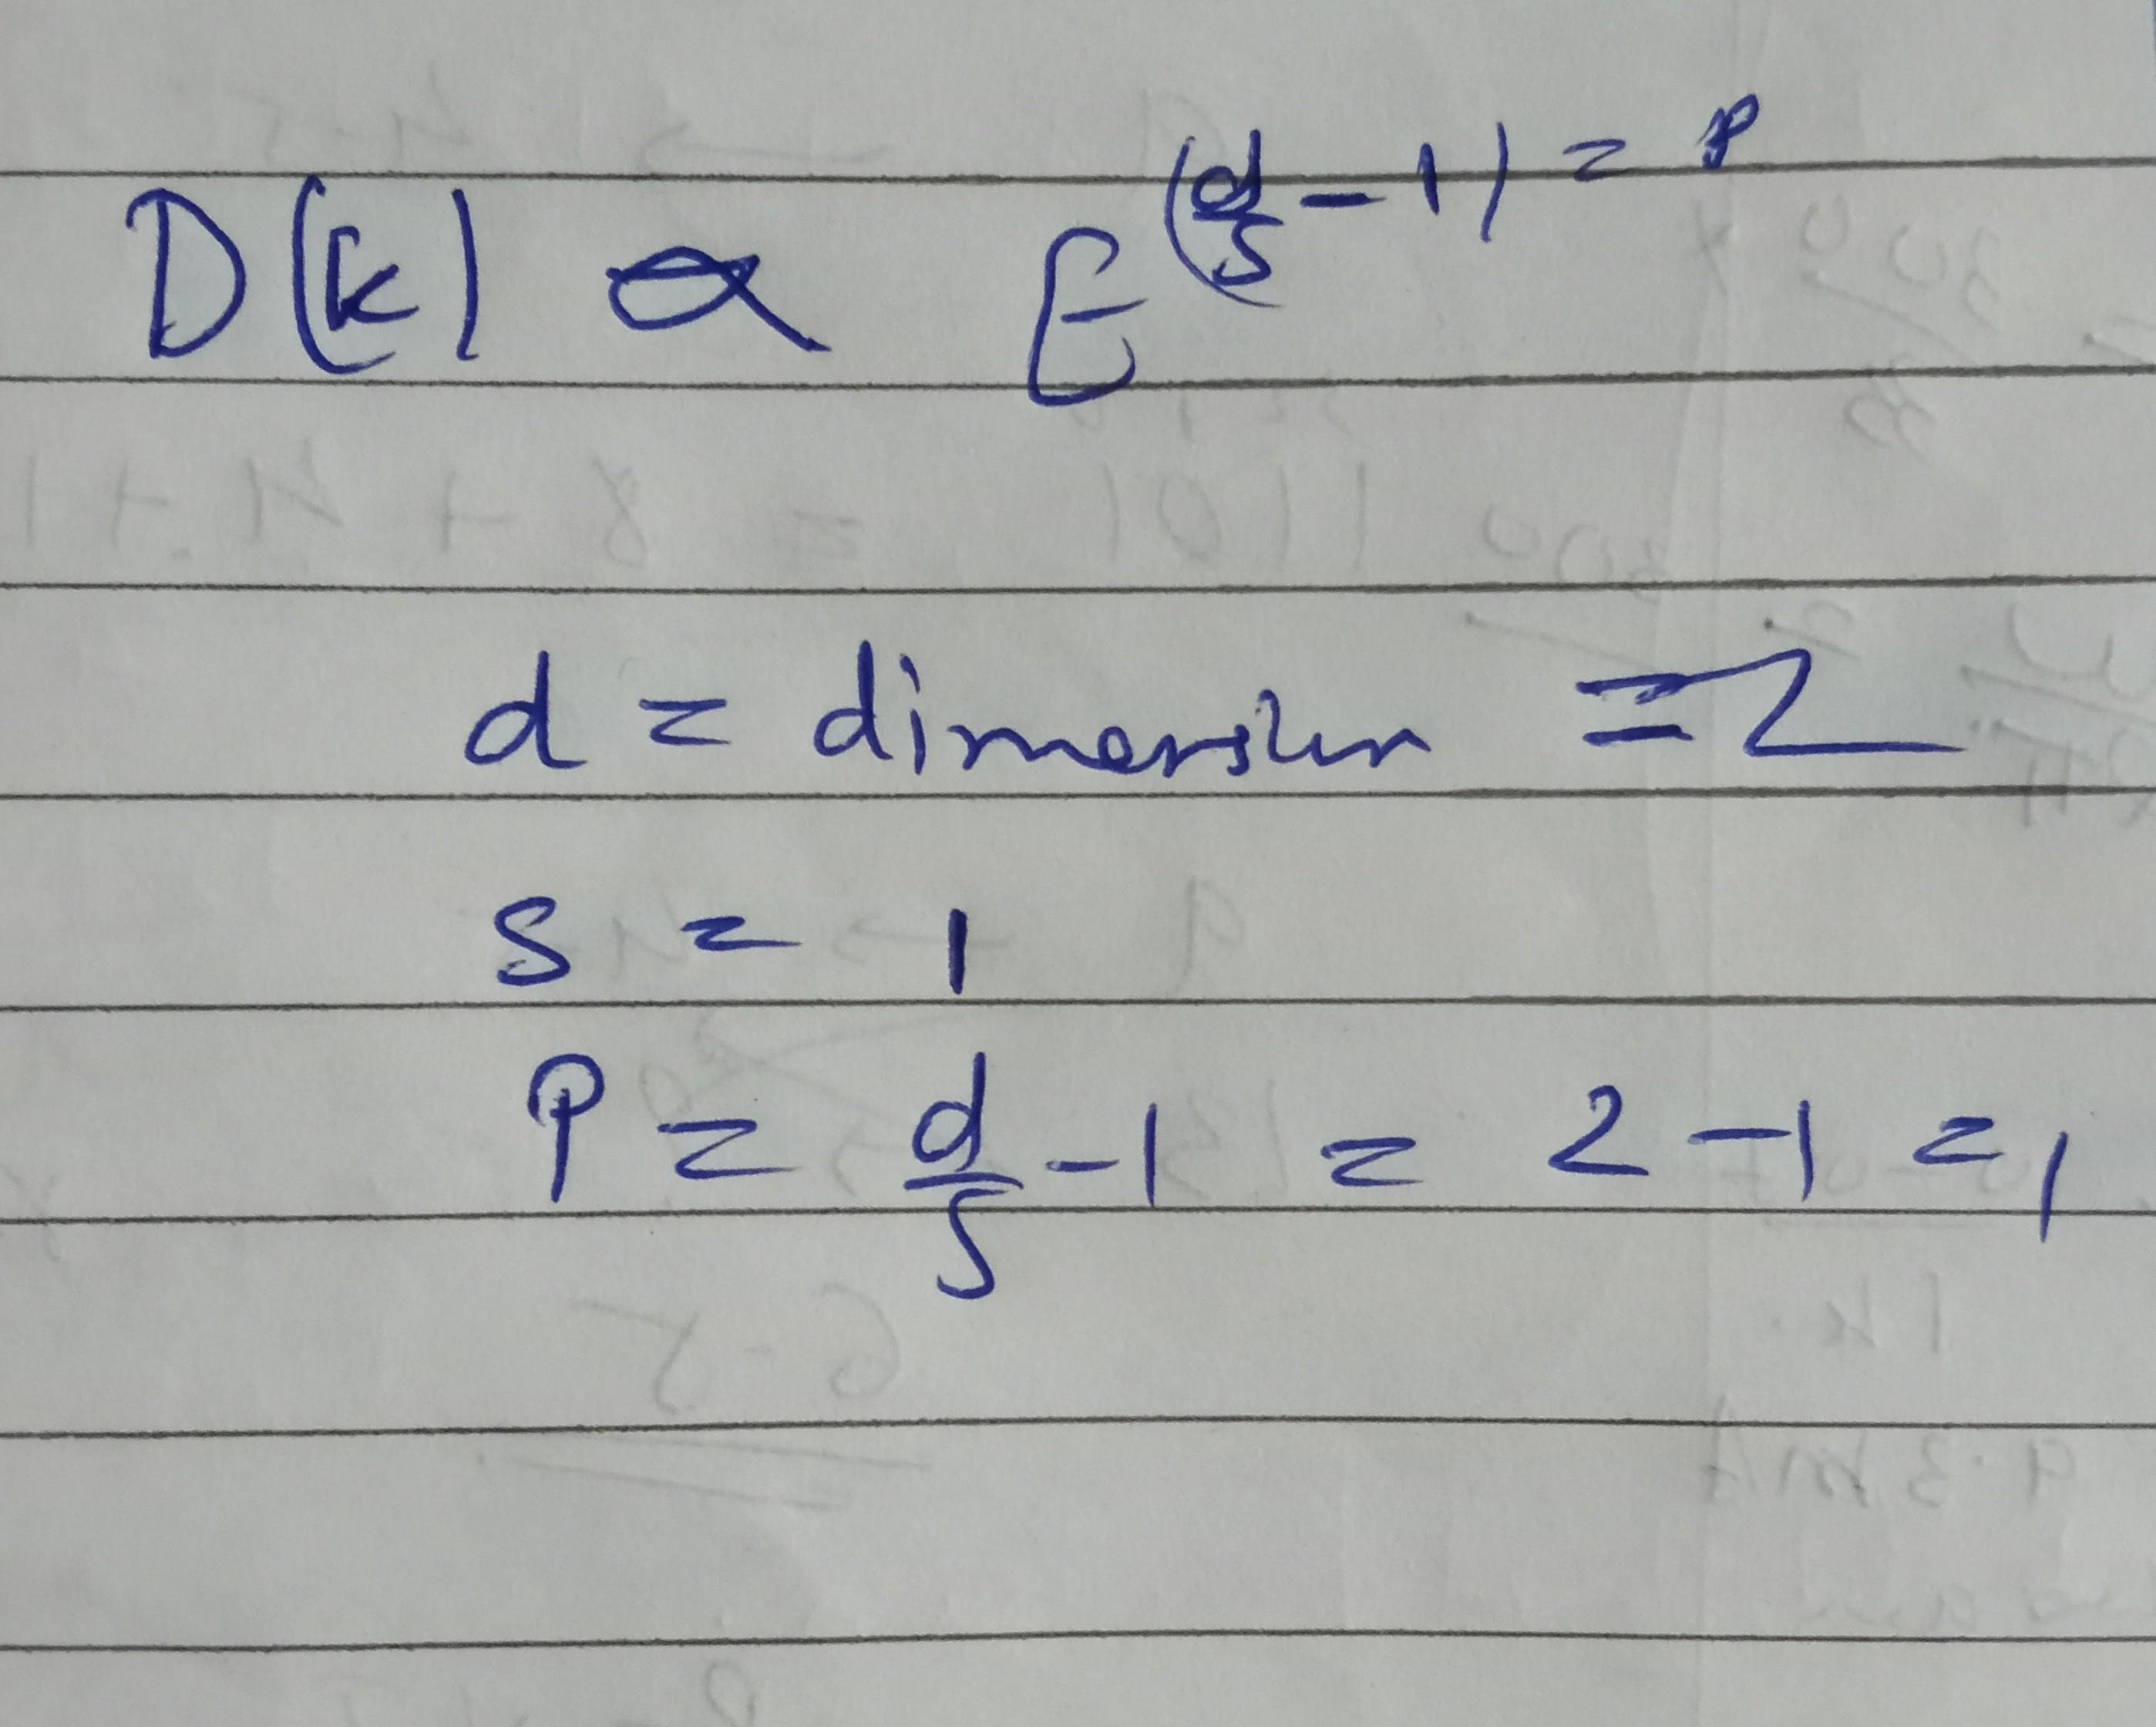 D(k) ∝ E^(d/s - 1) = p
d = dimension = 2
s = 1
P = d/s - 1 = 2 - 1 = 1